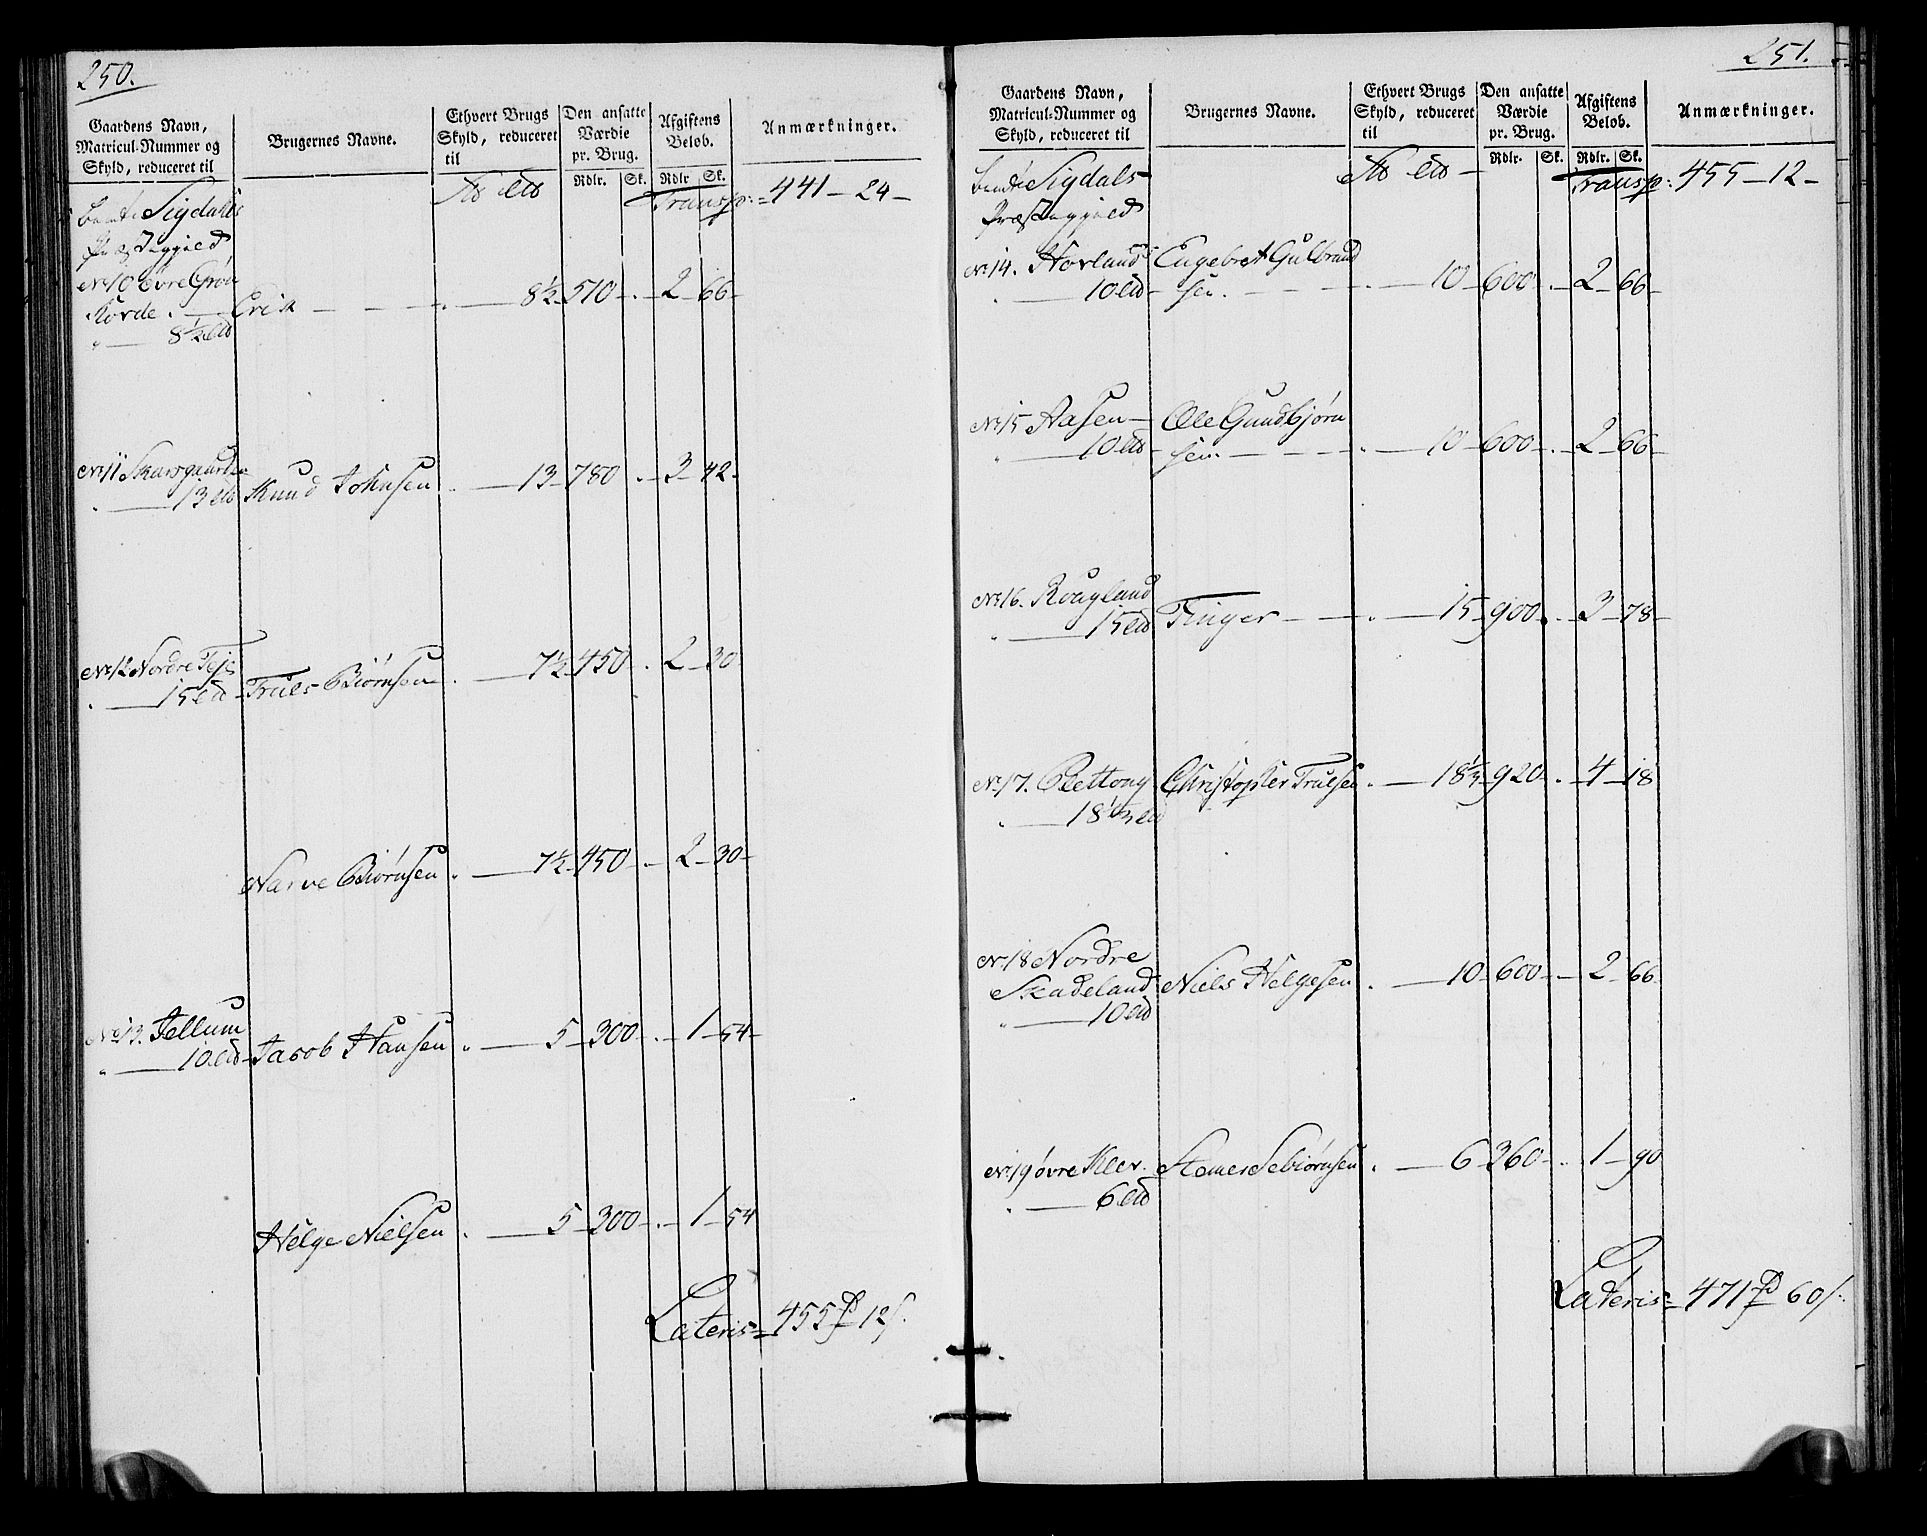 250.
Gaardens Navn,
Matricul-Nummer og
Skyld, reduceret til
Brugernes Navne.
Ethvert Brugs
Skyld, reduceret
til
Den ansatte
Værdie
pr. Brug.
Rdlr. Sk.
Afgiftens
Beløb.
Rdlr Sk.
Anmærkninger.
Sigdals
Præstegjeld
Transp: 441 - 24 -
No 10 øvre Grøn
Korde. Erik 8½ 510 - 2 - 66 -
8½
No 11 Skarsgaarden
13 Knud Johnsen 13 - 780 - 3 - 42 -
No 12 Nordre Teje
15 Truls Biørnsen 7½ 450 - 2 - 30
Narve Biørnsen 7½ 450 - 2 - 30 -
No 13. Jellum
10 Jacob Hansen 5 - 300 - 1 - 54 -
Helge Nielsen 5 - 300 - 1 - 54
Lateris 455 12
251.
Gaardens Navn,
Matricul-Nummer og
Skyld, reduceret til
Brugernes Navne.
Ethvert Brugs
Skyld, reduceret
til
Den ansatte
Værdie
pr. Brug.
Rdlr. Sk.
Afgiftens
Beløb.
Rdlr. Sk.
Anmærkninger.
Sigdals
Præstegjeld
Transp: 455 - 12 -
No 14. Hovland Engebret Gulbrand
10 sen. 10 - 600 - 2 - 66 -
No 15 Aasen Ole Gundbjørn
10 sen. 10 - 600 - 2 - 66 -
No 16. Rougland
15 Tinger 15 - 900 - 3 - 78 -
No 17. Rettong Christopher Truelsen 18⅓ 920 - 4 - 18
18⅓
No 18 Nordre
Skadeland Niels Helgesen 10 - 600 - 2 - 66
10
No 19 øvre Klev. Sebiørnsen 6 - 360 - 1 - 90
6
Lateris 471 60